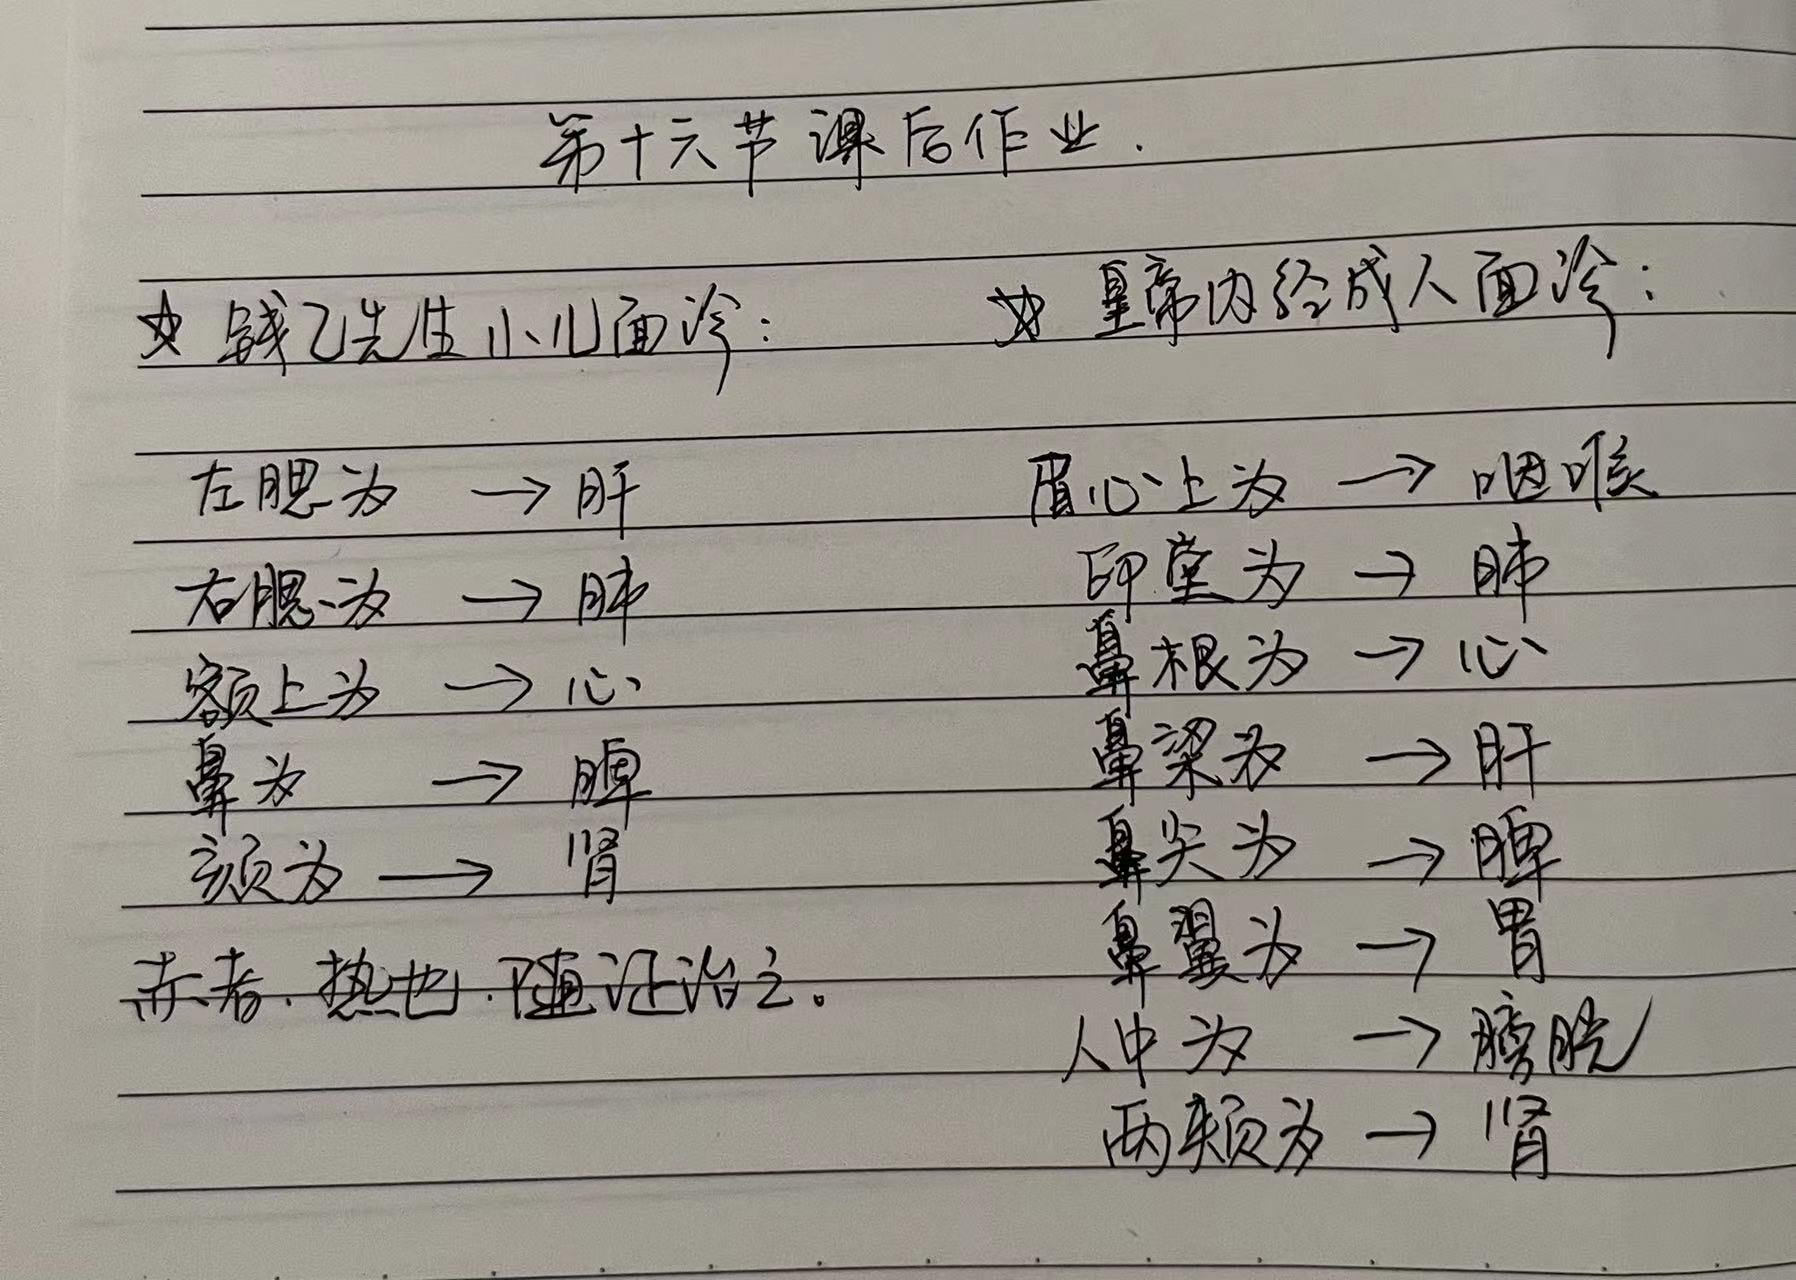 第十六节课后作业.
☆ 钱乙先生小儿面诊:
左腮为 → 肝
右腮为 → 肺
额上为 → 心
鼻为 → 脾
颏为 → 肾
赤者.热也.随证治之。
☆ 皇帝内经成人面诊:
眉心上为 → 咽喉
印堂为 → 肺
鼻根为 → 心
鼻梁为 → 肝
鼻尖为 → 脾
鼻翼为 → 胃
人中为 → 膀胱
两颊为 → 肾